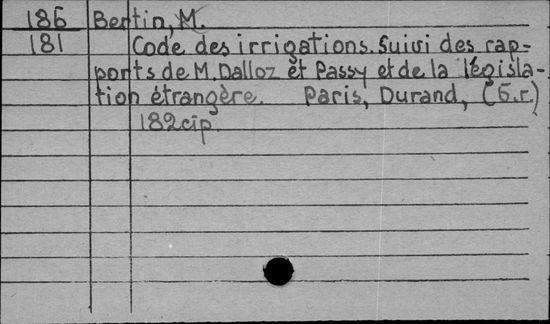 186 Bertin, M.
181 Code des irrigations. Suivi des rap-
ports de M. Dalloz et Passy et de la législa-
tion étrangère. Paris, Durand, (б.г.)
182cip.